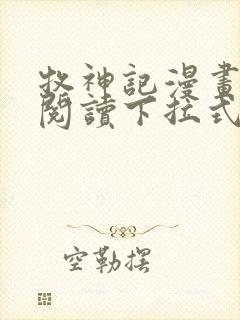 牧神記漫畫
閱讀下拉式
空勒摆